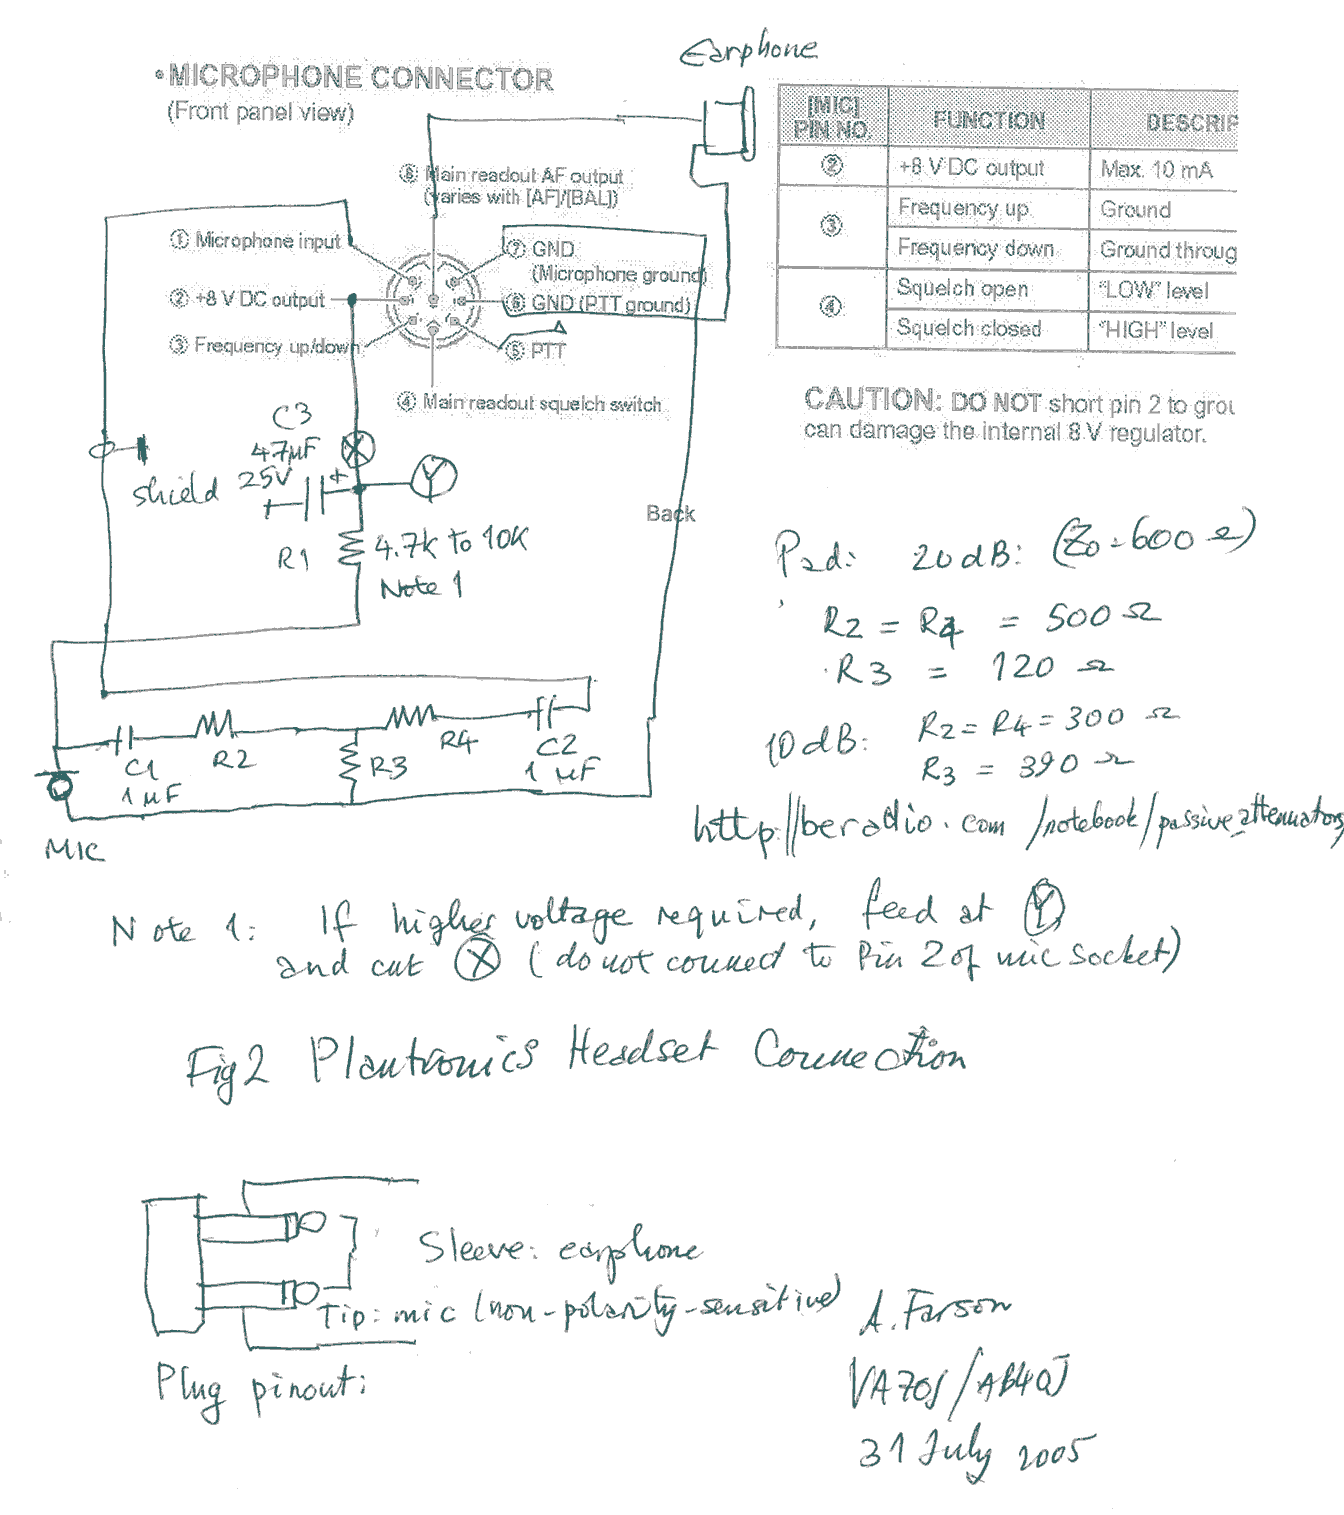 Earphone
•MICROPHONE CONNECTOR
(Front panel view)
⑧ Main readout AF output
(varies with [AF]/[BAL])
① Microphone input
⑦ GND
(Microphone ground)
② +8 V DC output
⑥ GND (PTT ground)
③ Frequency up/down
⑤ PTT
④ Main readout squelch switch
[MIC] PIN NO. FUNCTION DESCRIP
② +8 V DC output Max. 10 mA
③ Frequency up Ground
Frequency down Ground throug
④ Squelch open "LOW" level
Squelch closed "HIGH" level
CAUTION: DO NOT short pin 2 to grou
can damage the internal 8 V regulator.
C3
47µF
25V
+
X
Y
shield
R1
4.7k to 10K
Note 1
Back
Pad: 20dB: (Zo=600 Ω)
R2 = R4 = 500 Ω
R3 = 120 Ω
10dB: R2 = R4 = 300 Ω
R3 = 390 Ω
http//beradio.com/notebook/passive_attenuators
C1
1µF
R2
R3
R4
C2
1µF
MIC
Note 1: If higher voltage required, feed at Y
and cut X (do not connect to Pin 2 of mic socket)
Fig 2 Plantronics Headset Connection
Sleeve: earphone
Tip: mic (non-polarity-sensitive)
Plug pinout:
A. Farson
VA7OJ/AB4OJ
31 July 2005